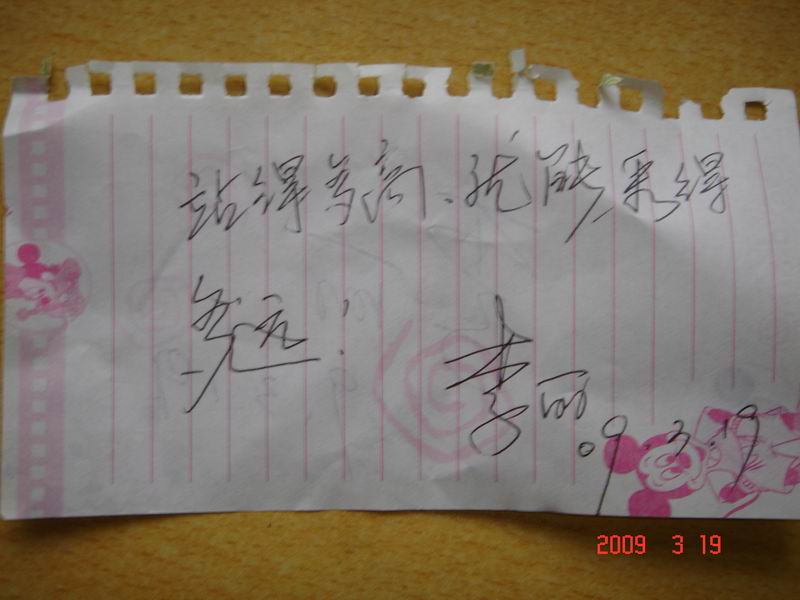 站得多高、就能看得
多远！
李丽
09.3.19
2009 3 19